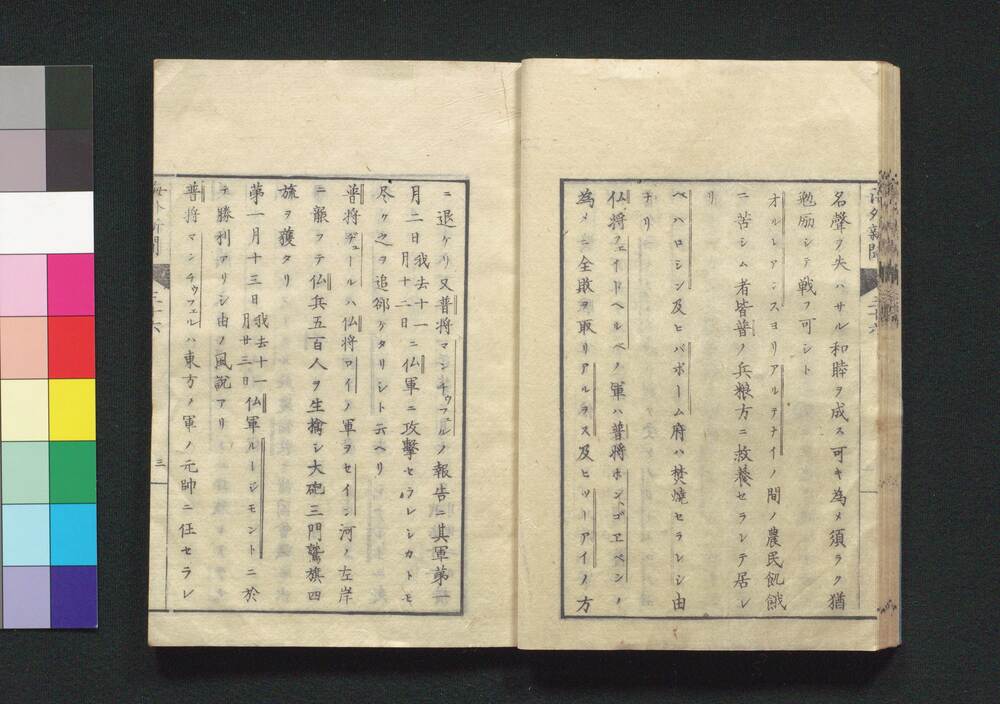 海外新聞
三十六
名聲ヲ失ハサル和睦ヲ成ス可キ為メ須ラク猶
勉励シテ戦フ可シト
オルレアンスヨリアルテナイノ間ノ農民飢餓
ニ苦シム者皆普ノ兵粮方ニ救養セラレテ居レ
リ
ベハロシン及ヒバポーム府ハ焚燒セラレシ由
ナリ
仏将フェイドヘルベノ軍ハ普将ホンゴヱベンノ
為メニ全敗ヲ取リアルラス及ヒツーアイノ方
ニ退ケリ又普将マンチウフェルノ報告ニ其軍第一
月二日我去十一月十二日ニ仏軍ニ攻擊セラレシカトモ
尽ク之ヲ追郤ケタリシト云ヘリ
普将ヂュールハ仏将ロイノ軍ヲセイン河ノ左岸
ニ襲フテ仏兵五百人ヲ生擒シ大砲三門鷲旗四
旒ヲ獲タリ
第一月十三日我去十一月廿三日仏軍ルージモントニ於
テ勝利アリシ由ノ風説アリ
普将マンチウフェルハ東方ノ軍ノ元帥ニ任セラレ
海外新聞
三十六
三